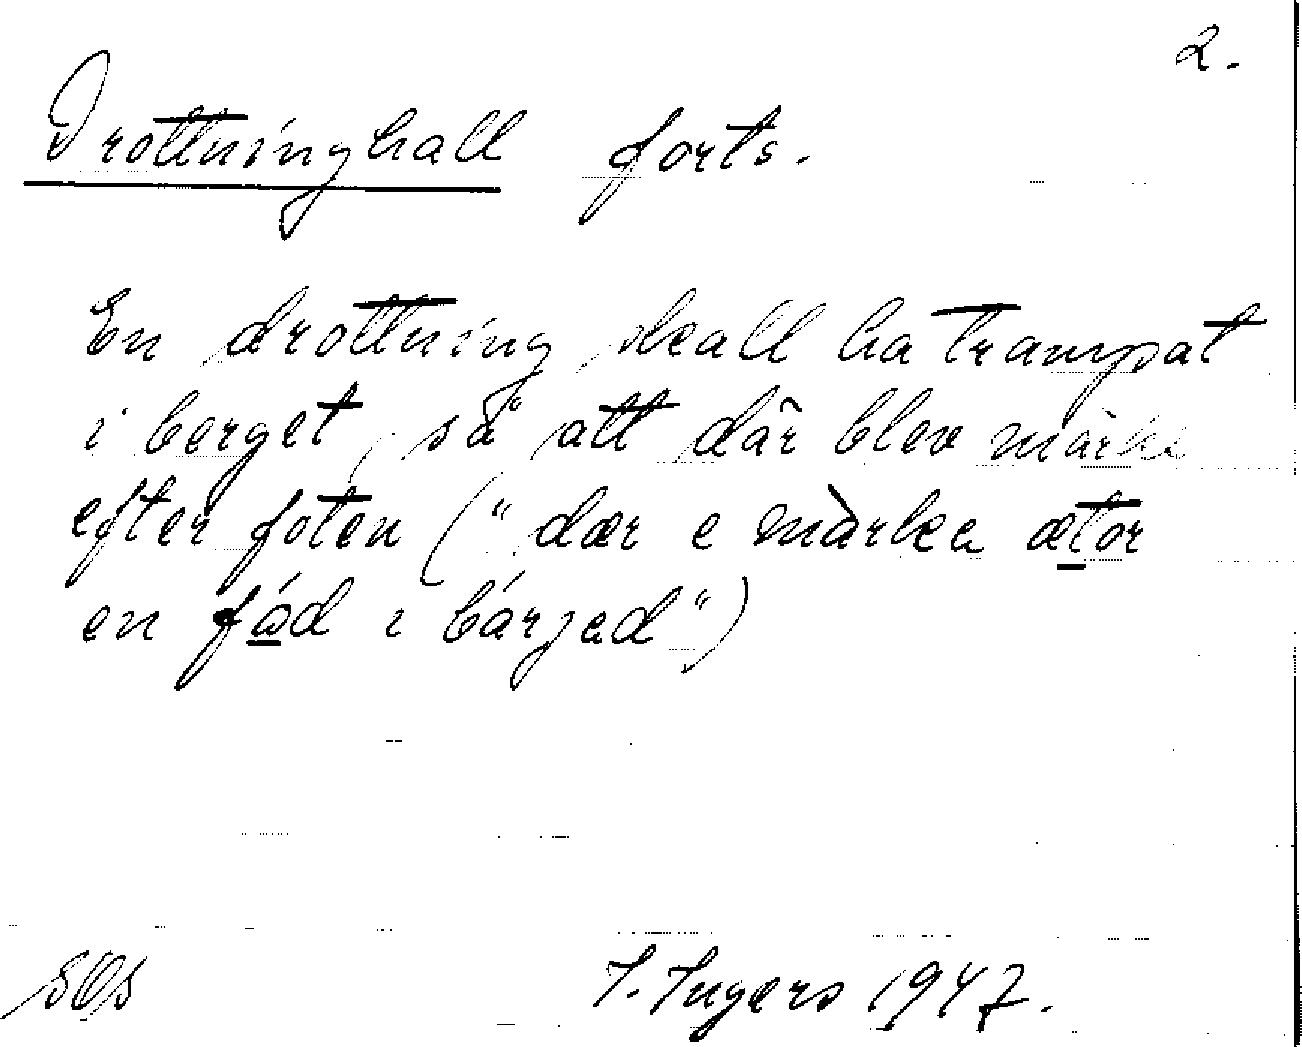 2.
Drottninghall forts.
En drottning skall ha trampat
i berget, så att där blev märke
efter foten ("dær e màrka ætor
en fód i bárjad")
I. Ingers 1947.